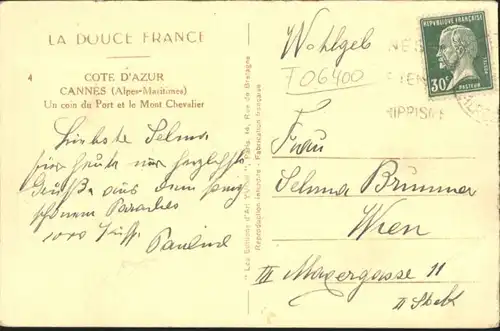 LA DOUCE FRANCE
4
COTE D'AZUR
CANNES (Alpes-Maritimes)
Un coin du Port et le Mont Chevalier
Liebste Selma
für heute nur herzlichste
Grüße aus dem
schönem Paradies
1000 Küsse
Pauline
"Les Editions d'Art Yvon" Paris, 14, Rue de Bretagne
Reproduction interdite - Fabrication française
Wohlgeb
T06400
RÉPUBLIQUE FRANÇAISE
30c
PASTEUR
HIPPISME
Frau
Selma Brünner
Wien
III Maxergasse 11
II Stock